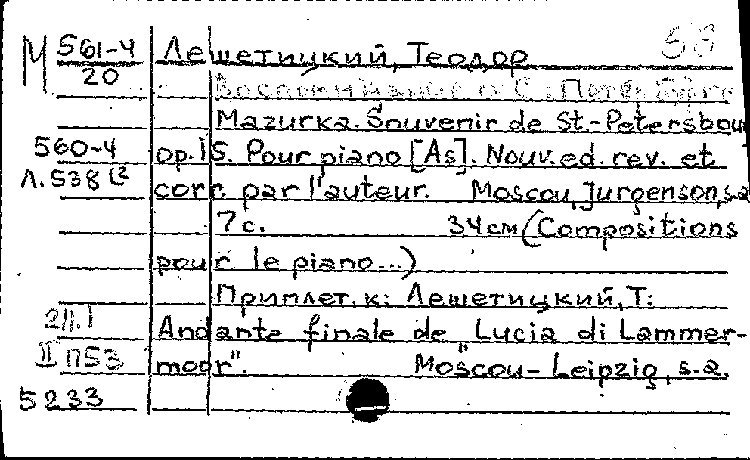 М 561-4 Лешетицкий, Теодор 58
20 Воспоминание о С.-Петербурге
Mazurka. Souvenir de St.-Petersbou
560-4 op. 15. Pour piano [As]. Nouv. ed. rev. et
Л. 538 corr. par l'auteur. Moscou, Jurgenson, s.a
7 с. 34 см (Compositions
pour le piano...)
Приплет. к: Лешетицкий, Т:
Andante finale de "Lucia di Lammer-
II П53 moor". Moscou-Leipzig, s.a.
5233